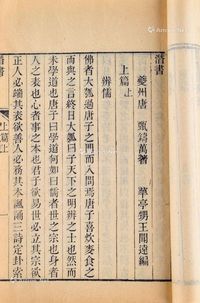 潛書
夔州唐　甄鑄萬著　華亭甥王聞遠編
上篇上
辨儒
佛者大瓠過唐子之門而入問焉唐子喜炊麥食之
而與之言終日大瓠曰子天下之明辨之士也然而
未學道也唐子曰學道何如曰儒者世之宗也身者
人之表也心者事之本也君子欲易世必立其宗欲
正人必端其表欲善人必務其本諷誦三詩定卦索
上篇上